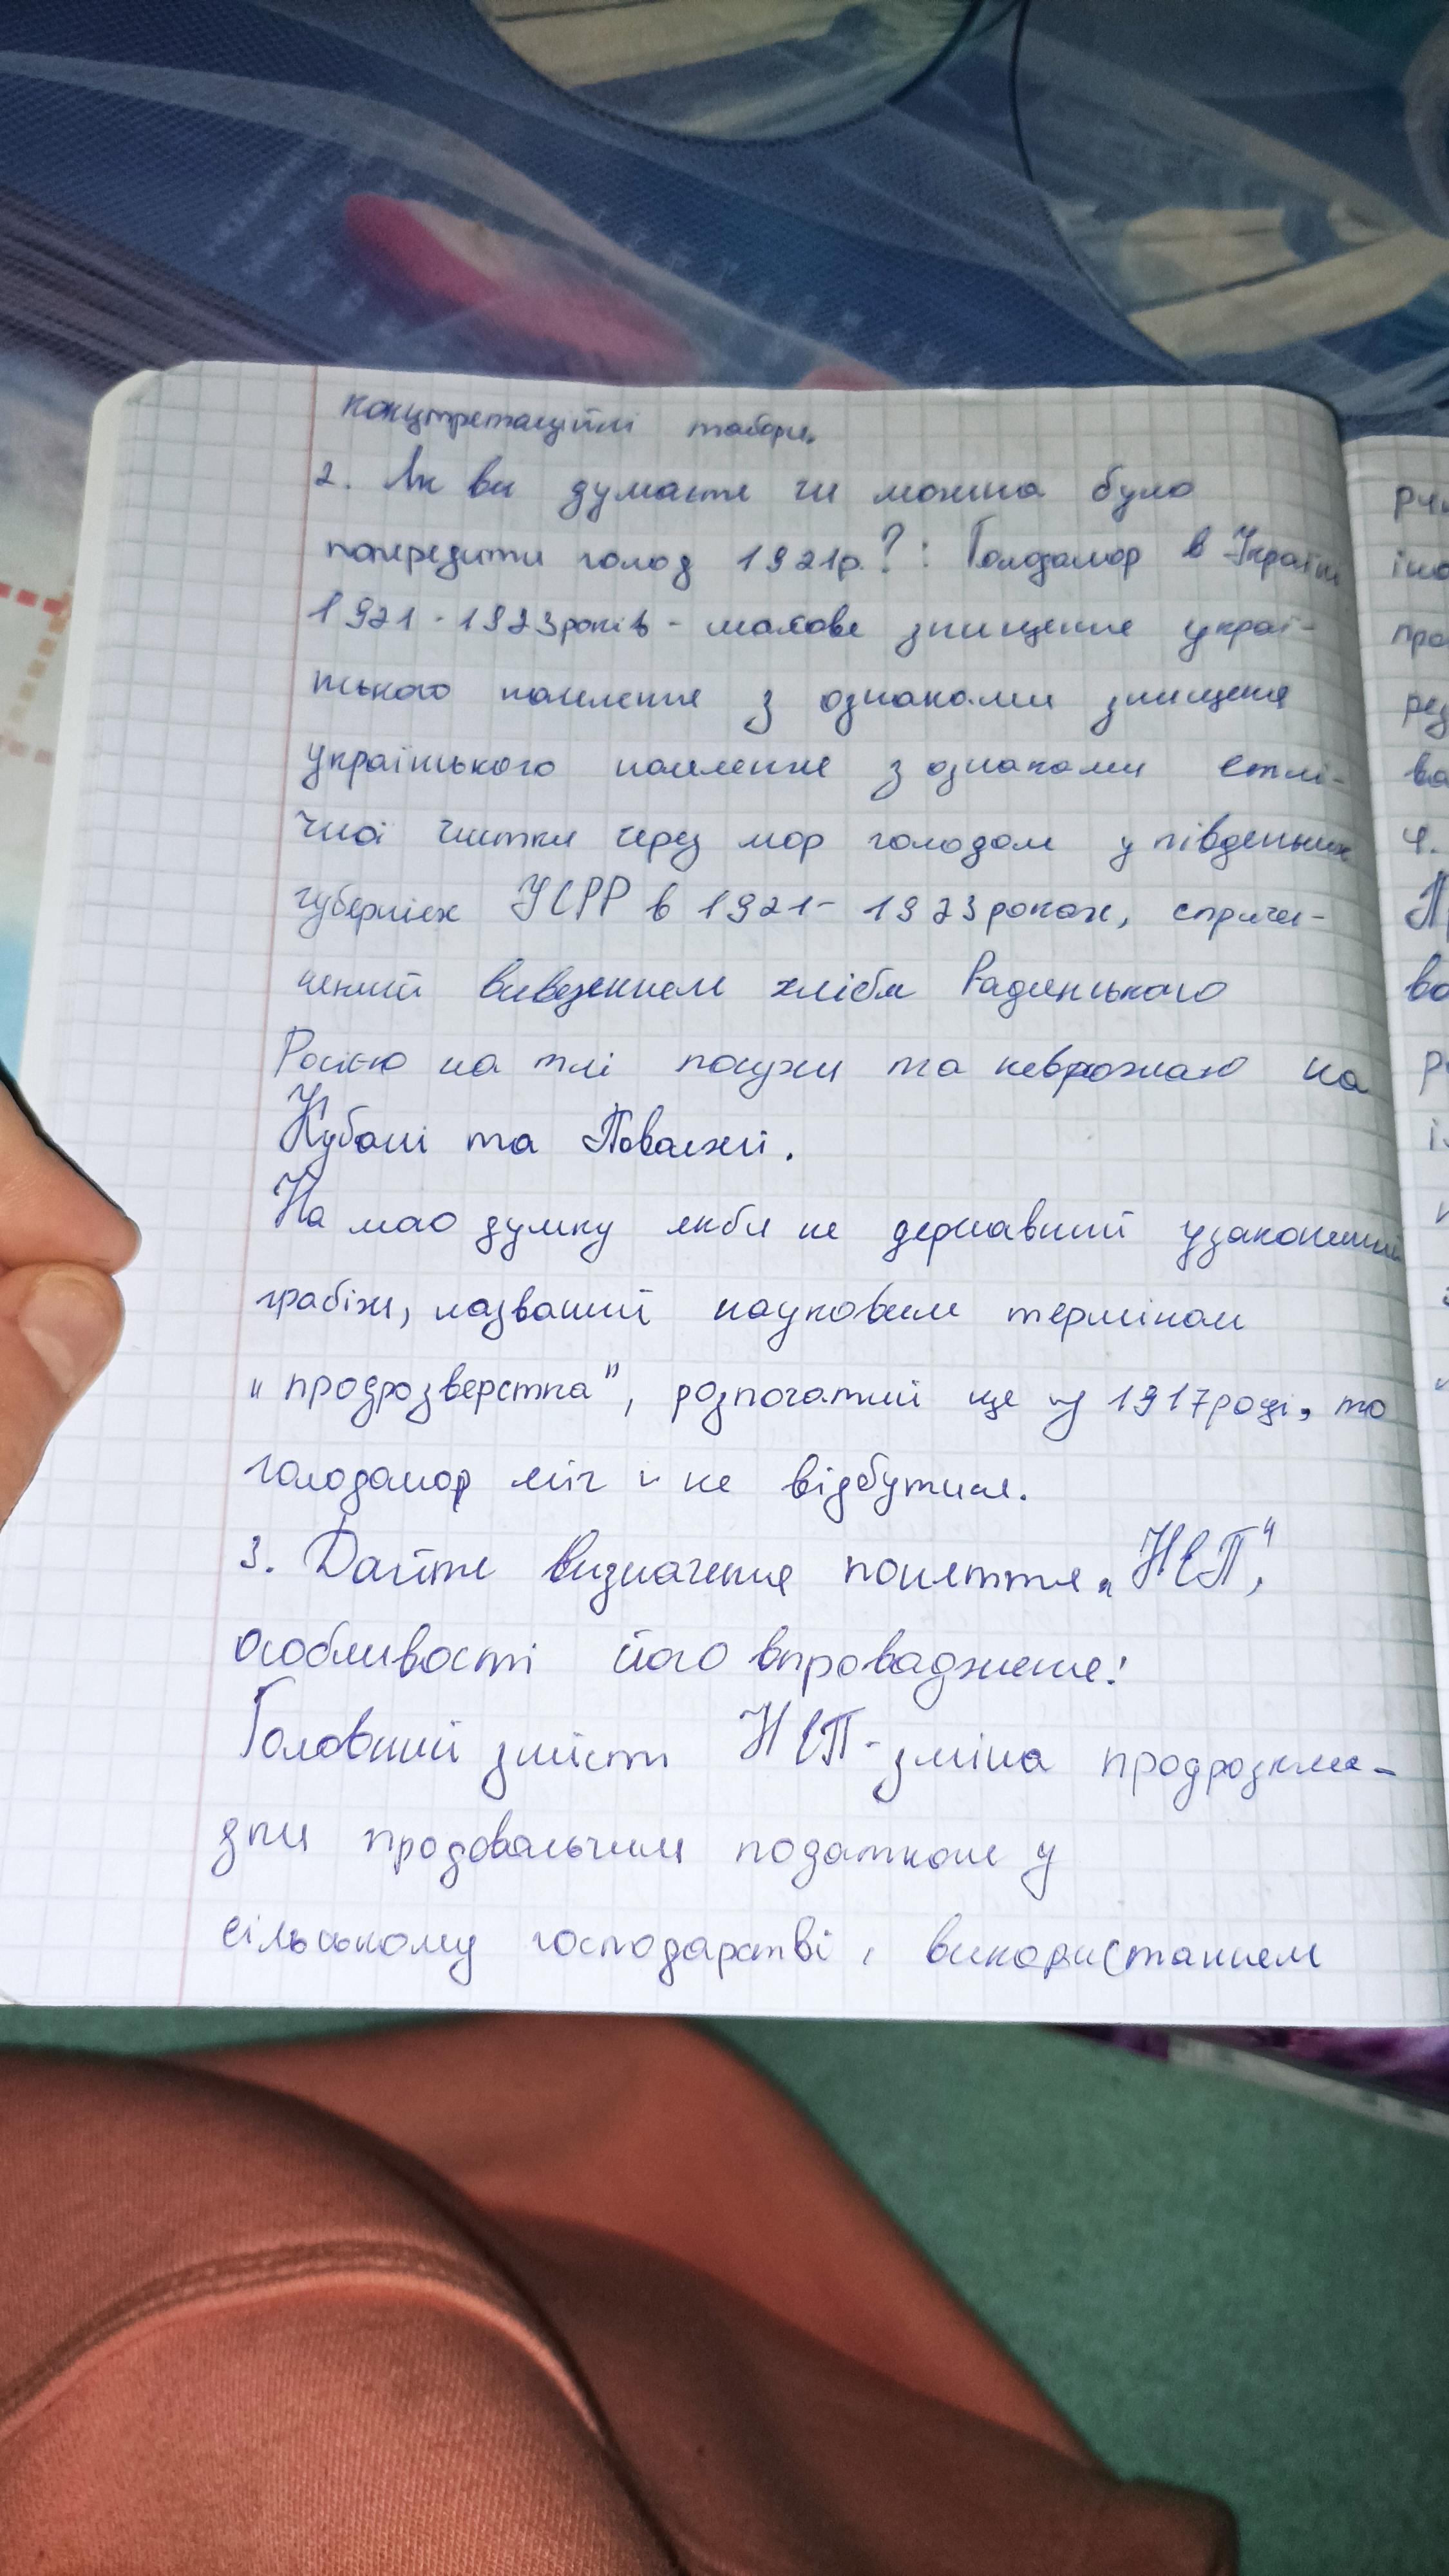 концтретаційні табори.
2. Як ви думаєте чи можна було
попередити голод 1921р.? : Голодомор в Україні
1921-1923років - масове знищення украї-
нського населення з ознаками знищення
українського населення з ознаками етні-
чної чистки через мор голодом у південних
губерніях УСРР в 1921-1923роках, спричи-
нений вивезенням хліба Радянського
Росією на тлі посухи та неврожаю на
Кубані та Поволжі.
На мою думку якби не державний узаконений
грабіж, названий науковим терміном
"продрозверстка", розпочатий ще у 1917році, то
голодомор міг и не відбутися.
3. Дайте визначення поняття "НЕП",
особливості його впровадження!
Головний зміст НЕП-зміна продрозкла-
дки продовольчим податком у
сільському господарстві, використанням
ре
ва
4.
П
во